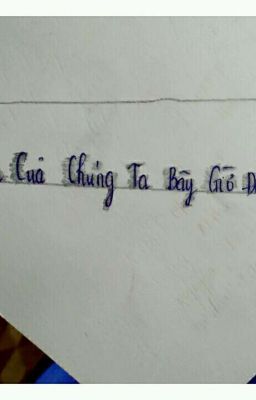 Của Chúng Ta Bây Giờ